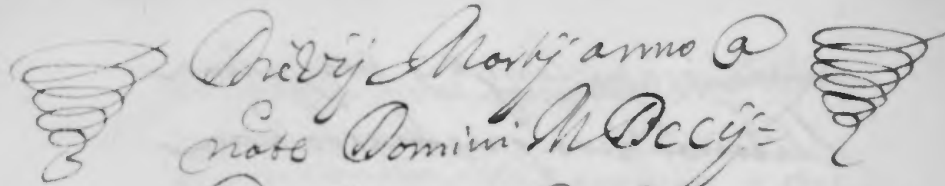 Die vij Martij anno a
nate Domini MDCCij=